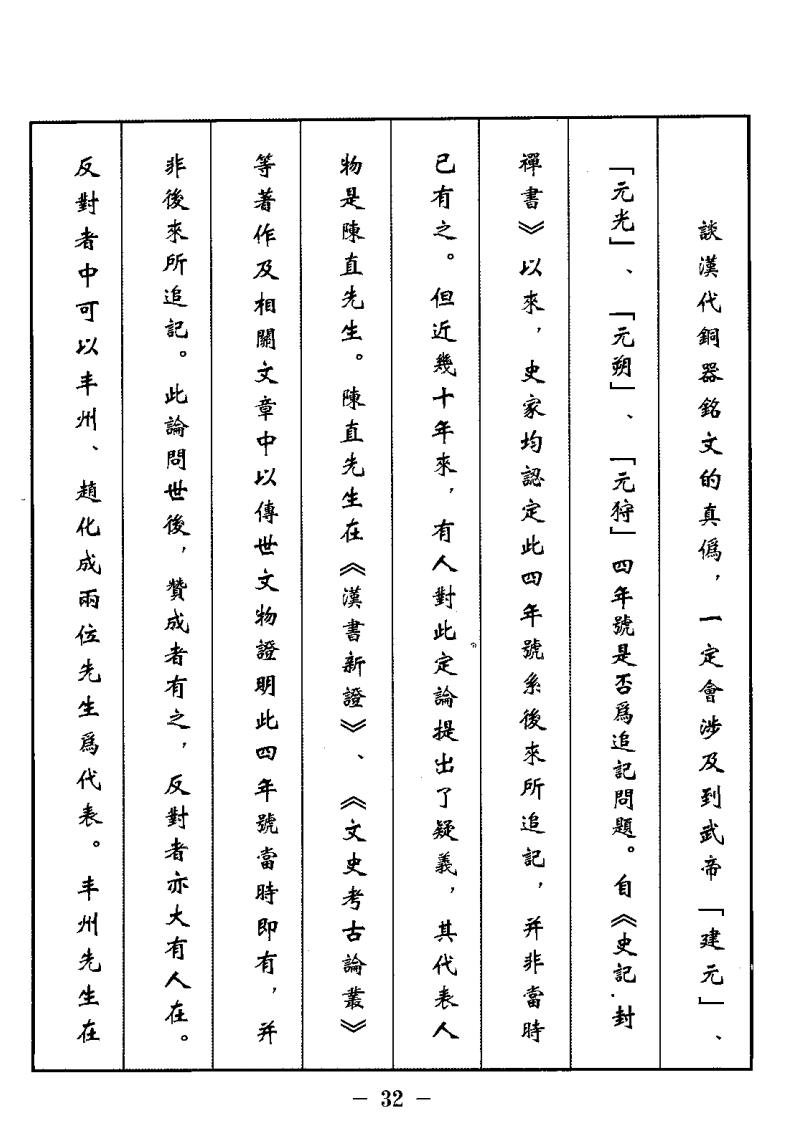 談漢代銅器銘文的真僞，一定會涉及到武帝「建元」、
「元光」、「元朔」、「元狩」四年號是否爲追記問題。自《史記·封
禪書》以來，史家均認定此四年號系後來所追記，并非當時
已有之。但近幾十年來，有人對此定論提出了疑義，其代表人
物是陳直先生。陳直先生在《漢書新證》、《文史考古論叢》
等著作及相關文章中以傳世文物證明此四年號當時即有，并
非後來所追記。此論問世後，贊成者有之，反對者亦大有人在。
反對者中可以丰州、趙化成兩位先生爲代表。丰州先生在
— 32 —